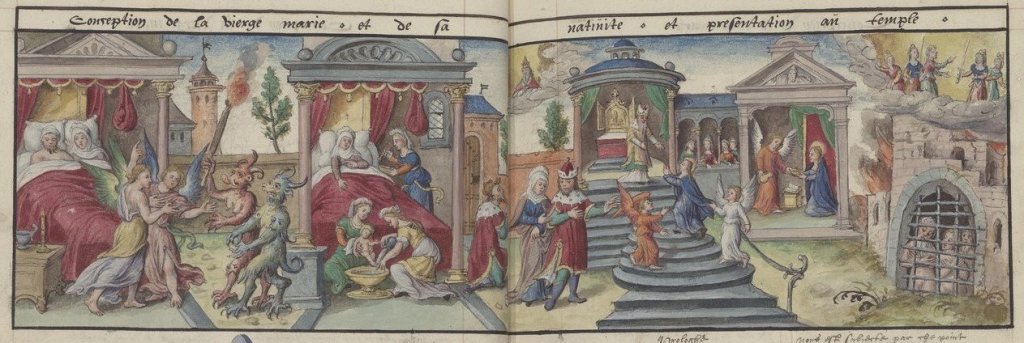 Conception de la vierge marie · et de sa natiuite · et presentation au temple ·
par
point